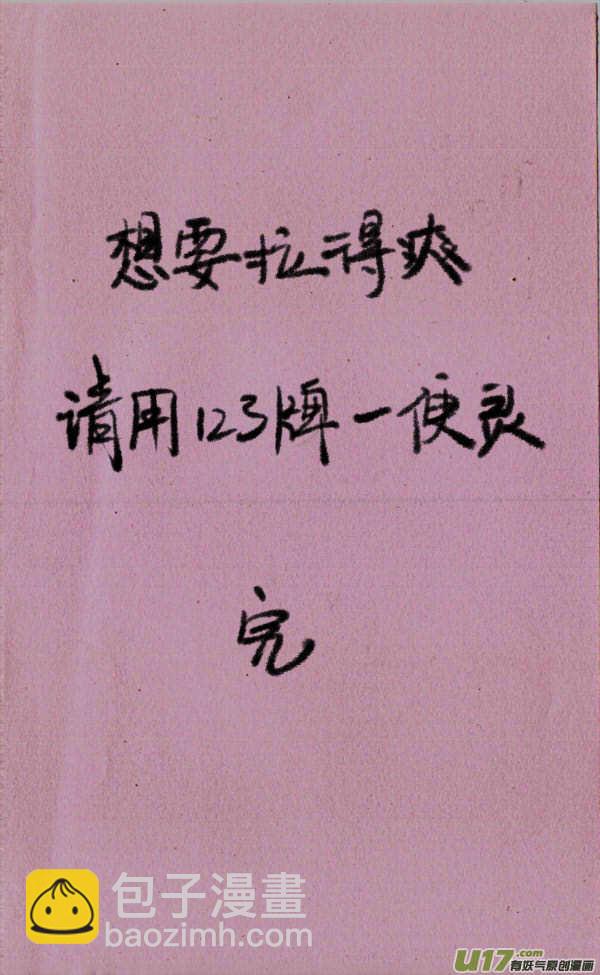 想要拉得爽
请用123牌一便灵
完
包子漫畫
baozimh.com
U17.com
有妖气原创漫画